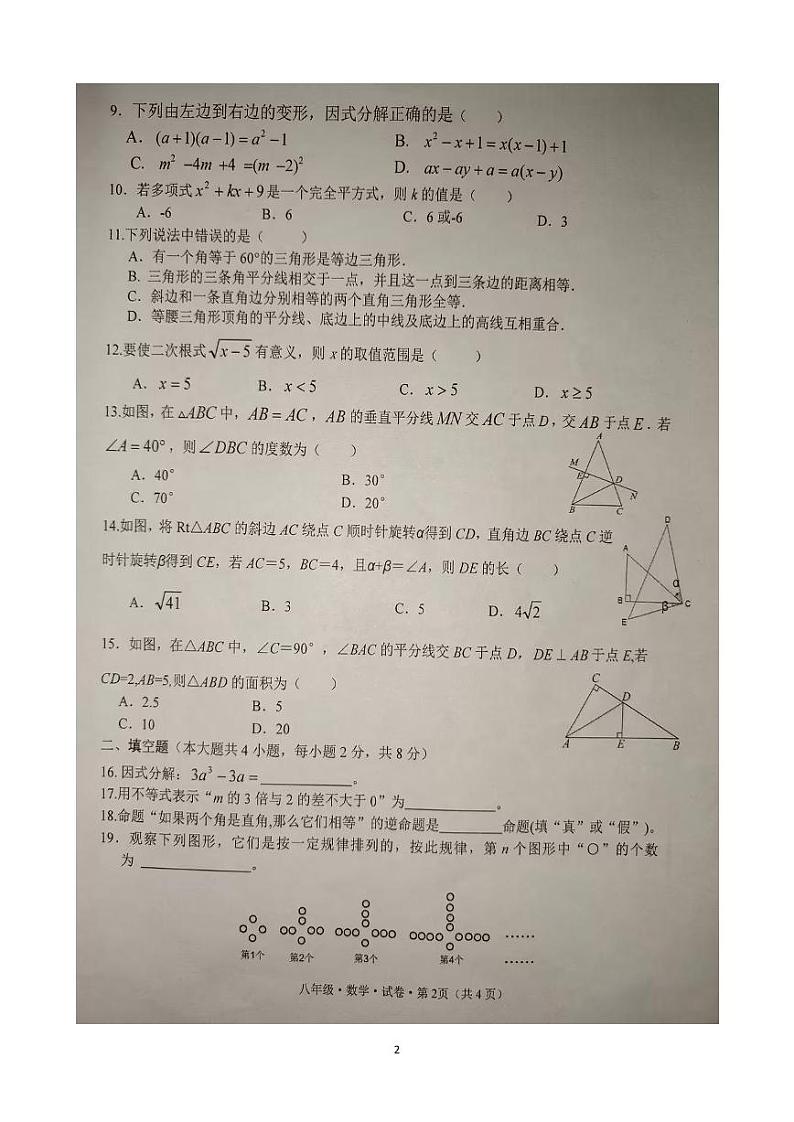 9. 下列由左边到右边的变形，因式分解正确的是（　　）
A. (a+1)(a−1)=a²−1　　B. x²−x+1=x(x−1)+1
C. m²−4m+4=(m−2)²　　D. ax−ay+a=a(x−y)
10. 若多项式x²+kx+9是一个完全平方式，则k的值是（　　）
A. -6　　B. 6　　C. 6或-6　　D. 3
11.下列说法中错误的是（　　）
A. 有一个角等于60°的三角形是等边三角形.
B. 三角形的三条角平分线相交于一点，并且这一点到三条边的距离相等.
C. 斜边和一条直角边分别相等的两个直角三角形全等.
D. 等腰三角形顶角的平分线、底边上的中线及底边上的高线互相重合.
12.要使二次根式√(x−5)有意义，则x的取值范围是（　　）
A. x=5　　B. x<5　　C. x>5　　D. x≥5
13.如图，在△ABC中，AB=AC，AB的垂直平分线MN交AC于点D，交AB于点E．若
∠A=40°，则∠DBC的度数为（　　）
A. 40°　　B. 30°
C. 70°　　D. 20°
A
M
E
D
N
B
C
14.如图，将Rt△ABC的斜边AC绕点C顺时针旋转α得到CD，直角边BC绕点C逆
时针旋转β得到CE，若AC=5，BC=4，且α+β=∠A，则DE的长（　　）
A. √41　　B. 3　　C. 5　　D. 4√2
D
A
α
B
β
C
E
15. 如图，在△ABC中，∠C=90°，∠BAC的平分线交BC于点D，DE⊥AB于点E,若
CD=2,AB=5,则△ABD的面积为（　　）
A. 2.5　　B. 5
C. 10　　D. 20
C
D
A
E
B
二、填空题（本大题共4小题，每小题2分，共8分）
16. 因式分解：3a³−3a=____________。
17.用不等式表示“m的3倍与2的差不大于0”为____________。
18.命题“如果两个角是直角,那么它们相等”的逆命题是________命题(填“真”或“假”)。
19. 观察下列图形，它们是按一定规律排列的，按此规律，第n个图形中“○”的个数
为 ______________。
……
第1个　第2个　第3个　第4个　……
八年级·数学·试卷·第2页（共4页）
2